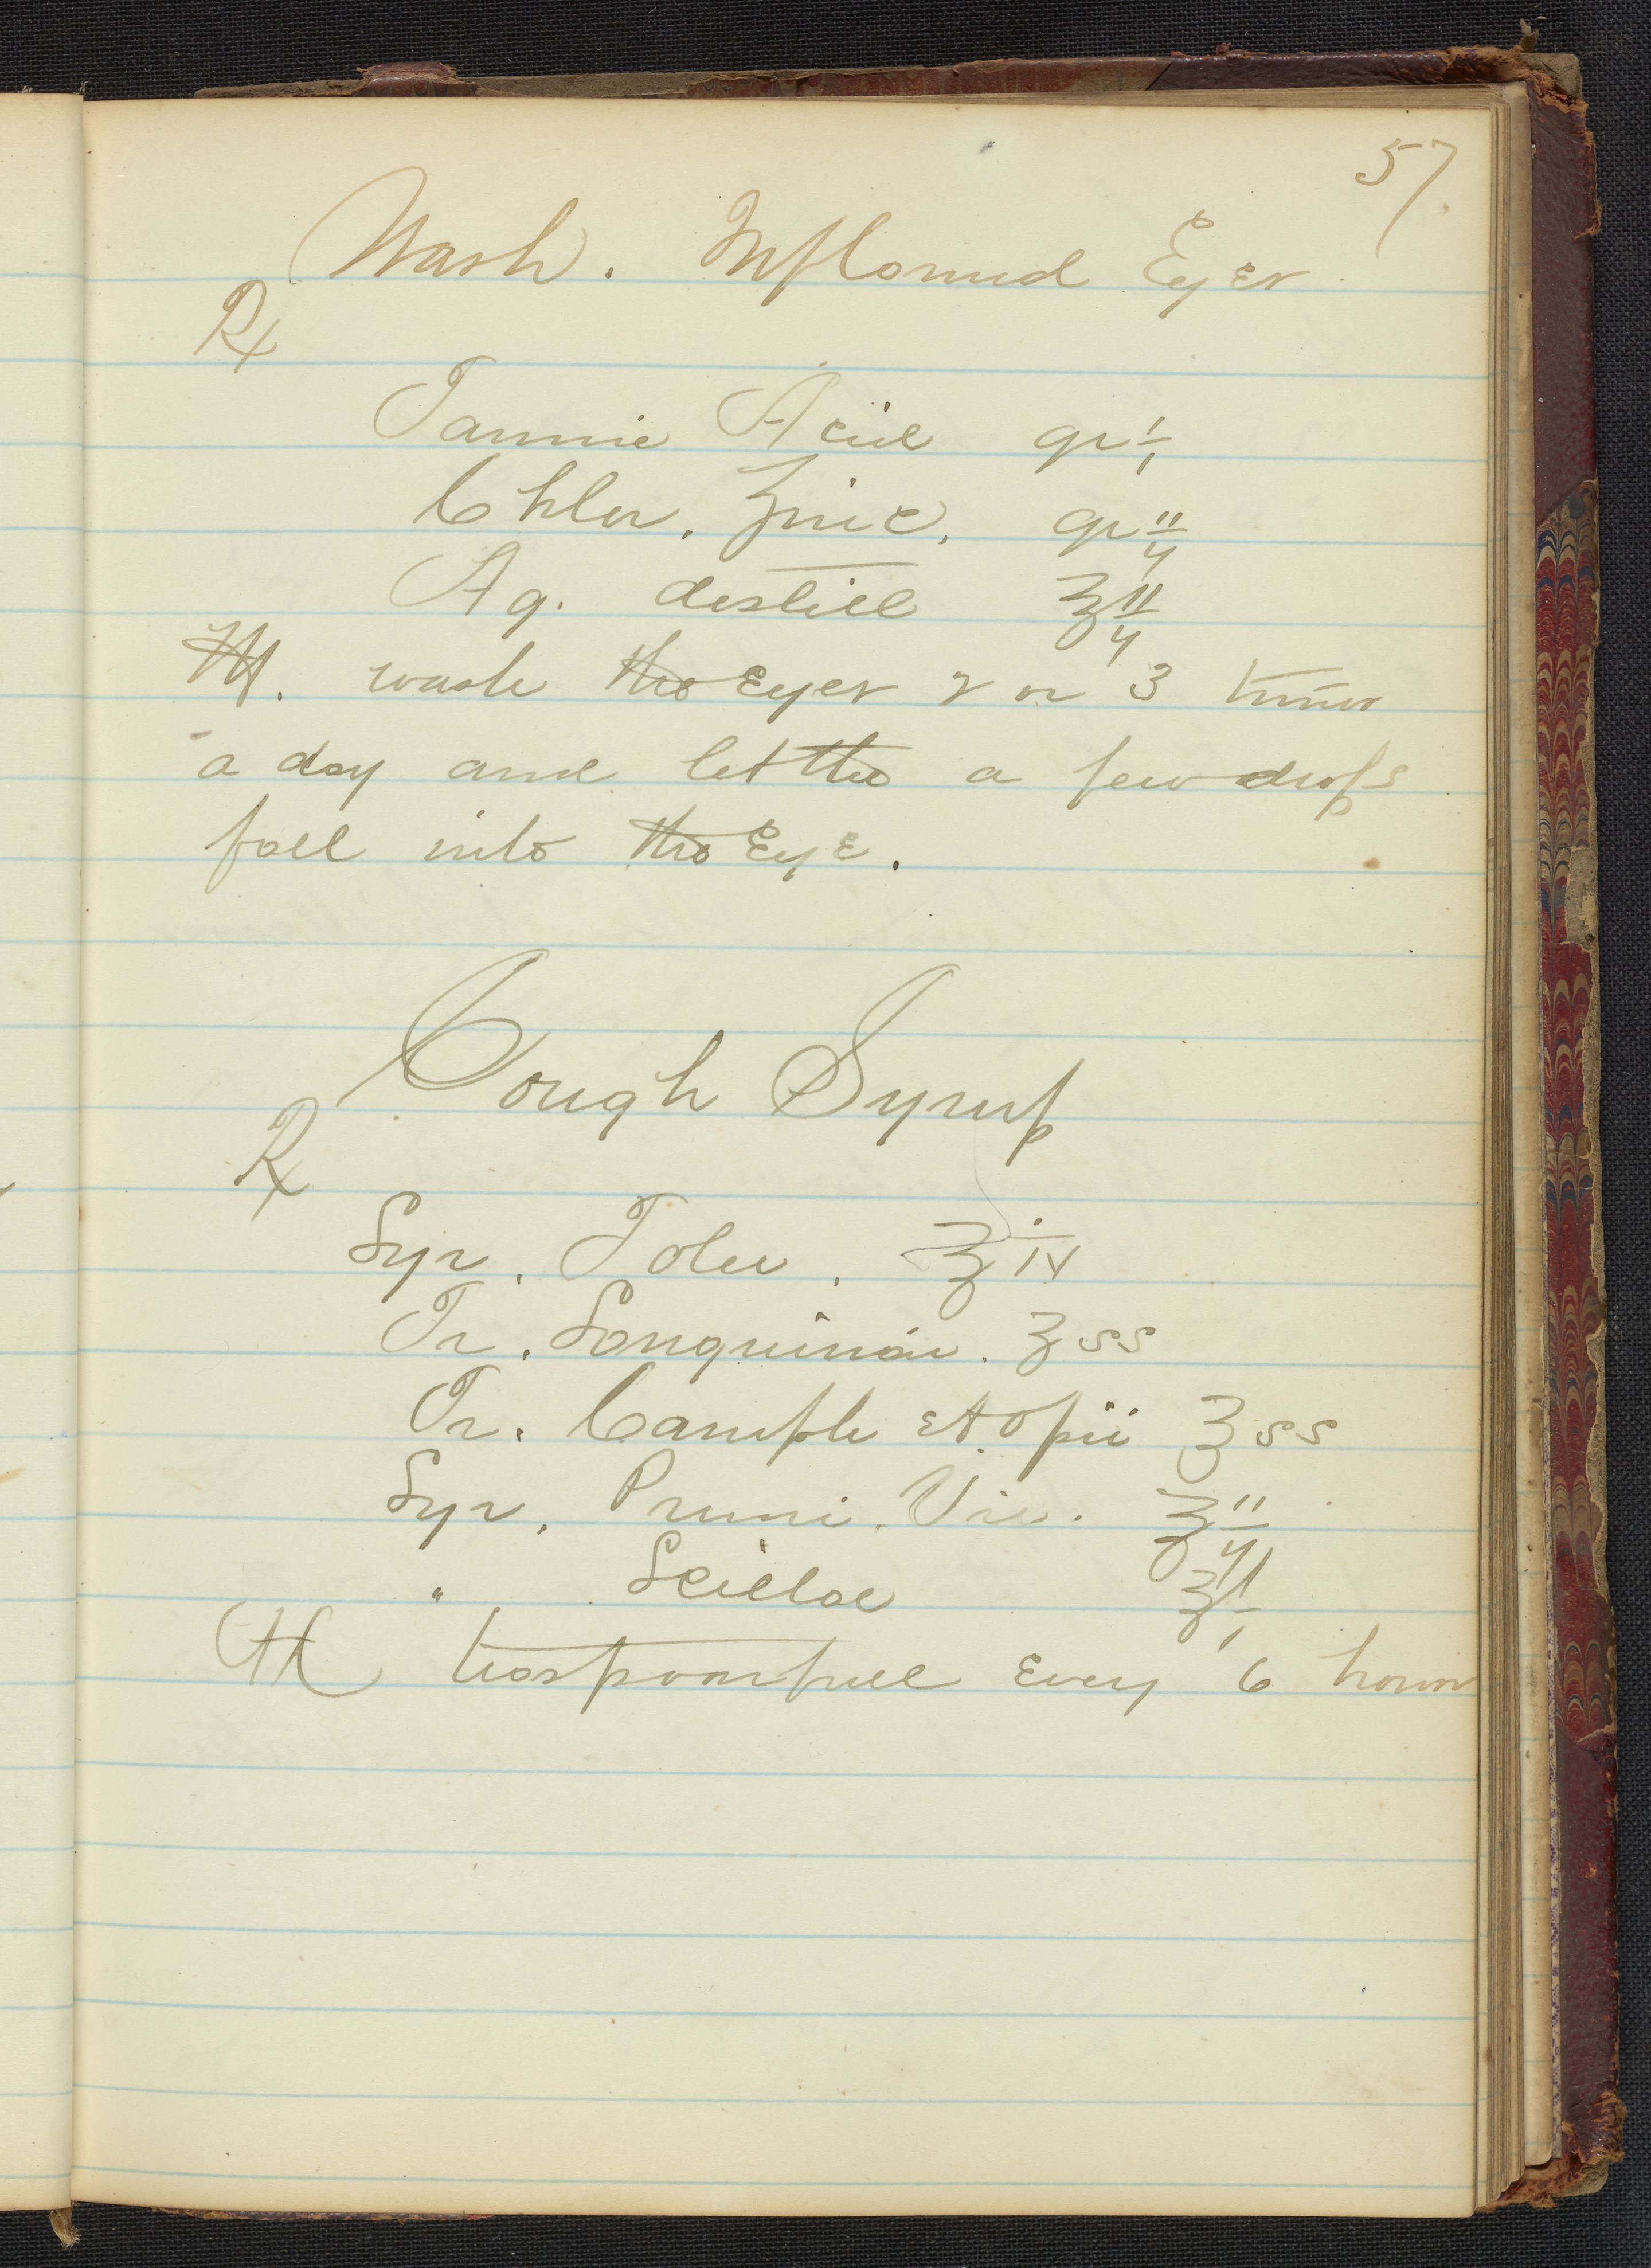 57
Wash. Inflamed Eyes
℞
Tannic Acid gr i
Chlor. Zinc. gr ij
Aq. destill ℥ ij
M. wash the Eyes 2 or 3 times
a day and let the a few drops
fall into the Eye.
Cough Syrup
℞
Syr. Tolu. ℥ iv
Tr. Sanguinar. ℥ ss
Tr. Camph et Opii ℥ ss
Syr. Pruni. Vir. ℥ ij
" Scillae ℥ i
M teaspoonfull every 6 hours